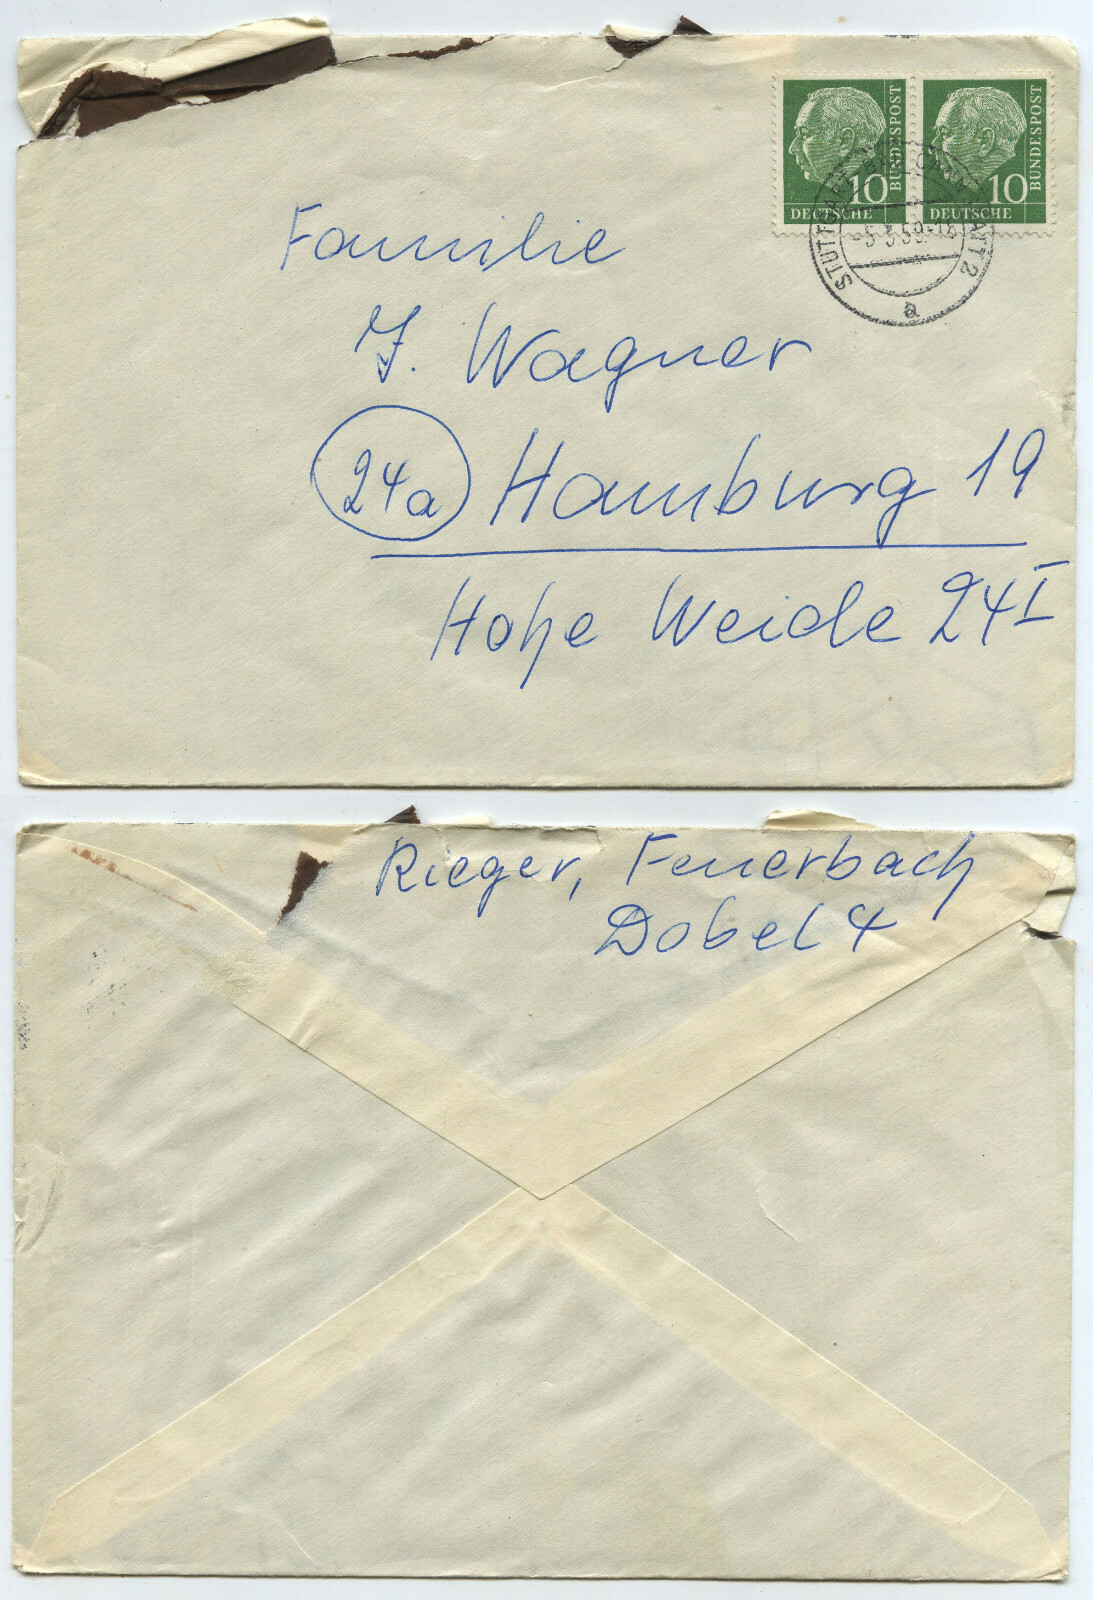 10 BUNDESPOST
DEUTSCHE
10 BUNDESPOST
DEUTSCHE
STUTTGART-BAD CANNSTATT 2
-5.3.59-18
a
Familie
J. Wagner
24a Hamburg 19
Hohe Weide 24 I
Rieger, Feuerbach
Dobel 4